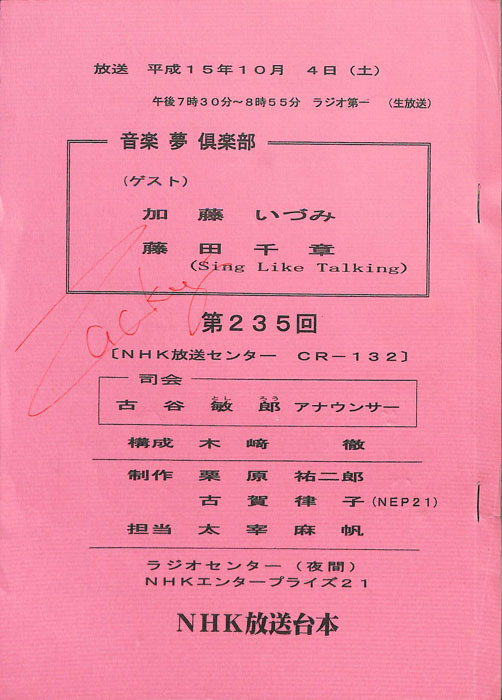 放送 平成15年10月 4日（土）
午後7時30分～8時55分 ラジオ第一 （生放送）
音楽 夢 倶楽部
（ゲスト）
加藤 いづみ
藤田千章
(Sing Like Talking)
Zacky
第235回
〔NHK放送センター CR－132〕
司会
古谷敏郎 アナウンサー
とし ろう
構成 木﨑 徹
制作 栗原 祐二郎
古賀 律子 (NEP21)
担当 太宰 麻帆
ラジオセンター（夜間）
NHKエンタープライズ21
NHK放送台本